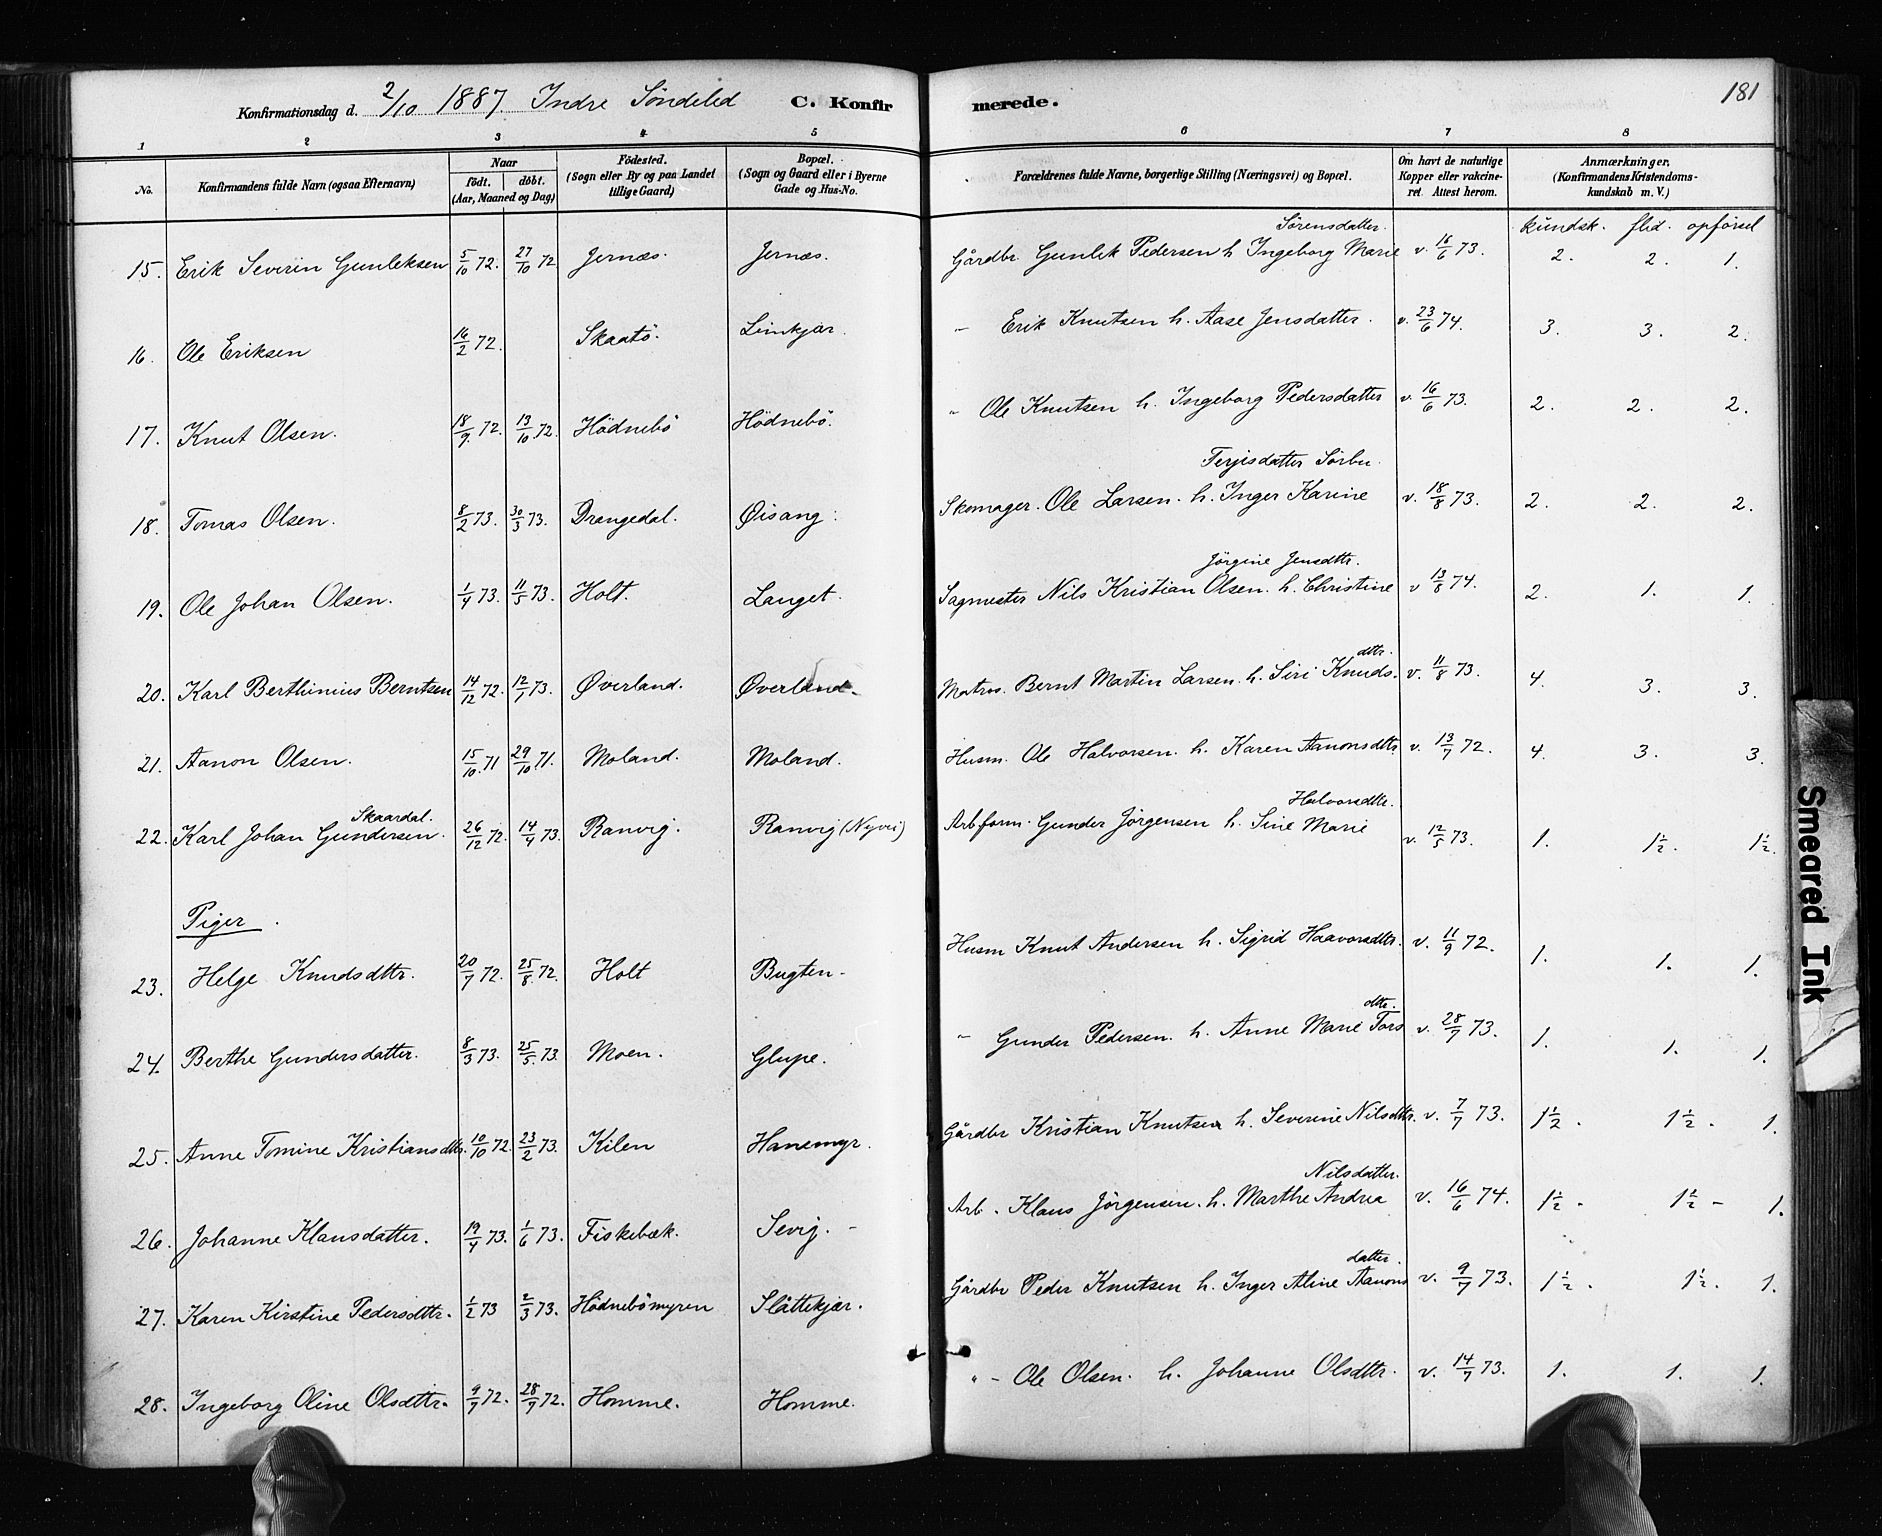 Konfirmationsdag d. 2/10 1887. Indre Söndeled C. Konfirmerede. 181
1 2 3 4 5 6 7 8
No. Konfirmandens fulde Navn (ogsaa Efternavn) Naar födt. döbt. (Aar, Maaned og Dag) Födested. (Sogn eller By og paa Landet tillige Gaard) Bopæl. (Sogn og Gaard eller i Byerne Gade og Hus-No. Forældrenes fulde Navne, borgerlige Stilling (Næringsvei) og Bopæl. Om havt de naturlige Kopper eller vakcineret. Attest herom. Anmærkninger. (Konfirmandens Kristendomskundskab m. V.)
kundsk. flid. opförsel
15. Erik Severin Gunleksen 5/10 72. 27/10 72 Jernæs. Jernæs. Gårdbr. Gunlek Pedersen h Ingeborg Marie Sörensdatter. v. 16/6 73. 2. 2. 1.
16. Ole Eriksen 16/2 72. Skaatö. Limkjær. " Erik Knutsen h. Aase Jensdatter. v. 23/6 74. 3. 3. 2.
17. Knut Olsen. 18/9 72. 13/10 72. Hödnebö Hödnebö. " Ole Knutsen h. Ingeborg Pedersdatter v. 16/6 73. 2. 2. 2.
18. Tomas Olsen. 8/2 73. 30/3 73. Drangedal. Øisang. Skomager. Ole Larsen. h. Inger Karine Terjisdatter Sörbu. v. 18/8 73. 2. 2. 2.
19. Ole Johan Olsen. 1/4 73. 11/5 73. Holt. Langet. Sagmester Nils Kristian Olsen. h. Christine Jörgine Jensdttr. v 13/8 74. 2. 1. 1.
20. Karl Berthinius Berntsen 14/12 72. 12/7 73. Øverland. Øverland. Matros. Bernt Martin Larsen. h. Siri Knuds.dttr. v. 11/8 73. 4. 3. 3.
21. Aanon Olsen. 15/10 71 29/10 71. Moland. Moland. Husm. Ole Halvorsen. h. Karen Aanonsdttr v. 13/7 72. 4. 3. 3.
22. Karl Johan Gundersen. Skaardal. 26/12 72. 14/4 73. Ranvig. Ranvig (Nyvei) Arbform. Gunder Jörgensen h. Sine Marie Halvorsdttr. v. 12/5 73. 1. 1½. 1½.
Piger.
23. Helge Knudsdttr. 20/7 72. 25/8 72. Holt Bugten. Husm Knut Andersen h. Sigrid Haavorsdttr. v. 11/9 72. 1. 1. 1.
24. Berthe Gundersdatter. 8/3 73. 25/5 73. Moen. Glupe. " Gunder Pedersen. h. Anne Marie Torsdttr. v. 28/7 73. 1. 1. 1.
25. Anne Tomine Kristiansdttr. 10/10 72. 23/2 73. Kilen Hanemyr. Gårdbr Kristian Knutsen h. Severine Nilsdttr. v. 7/7 73. 1½. 1½. 1.
26. Johanne Klausdatter. 19/4 73. 1/6 73. Fiskebæk. Sevig. Arb. Klaus Jörgensen. h. Marthe Andrea Nilsdatter. v. 16/6 74. 1½. 1½ 1.
27. Karen Kirstine Pedersdttr. 1/2 73 2/3 73. Hödnebömyren Slåttekjær. Gårdbr Peder Knutsen h. Inger Aline Aanonsdatter. v. 9/7 73. 1½. 1½. 1.
28. Ingeborg Oline Olsdttr. 9/7 72. 28/7 72. Homme. Homme. " Ole Olsen. h. Johanne Olsdttr. v. 14/7 73. 1. 1. 1.
Smeared Ink